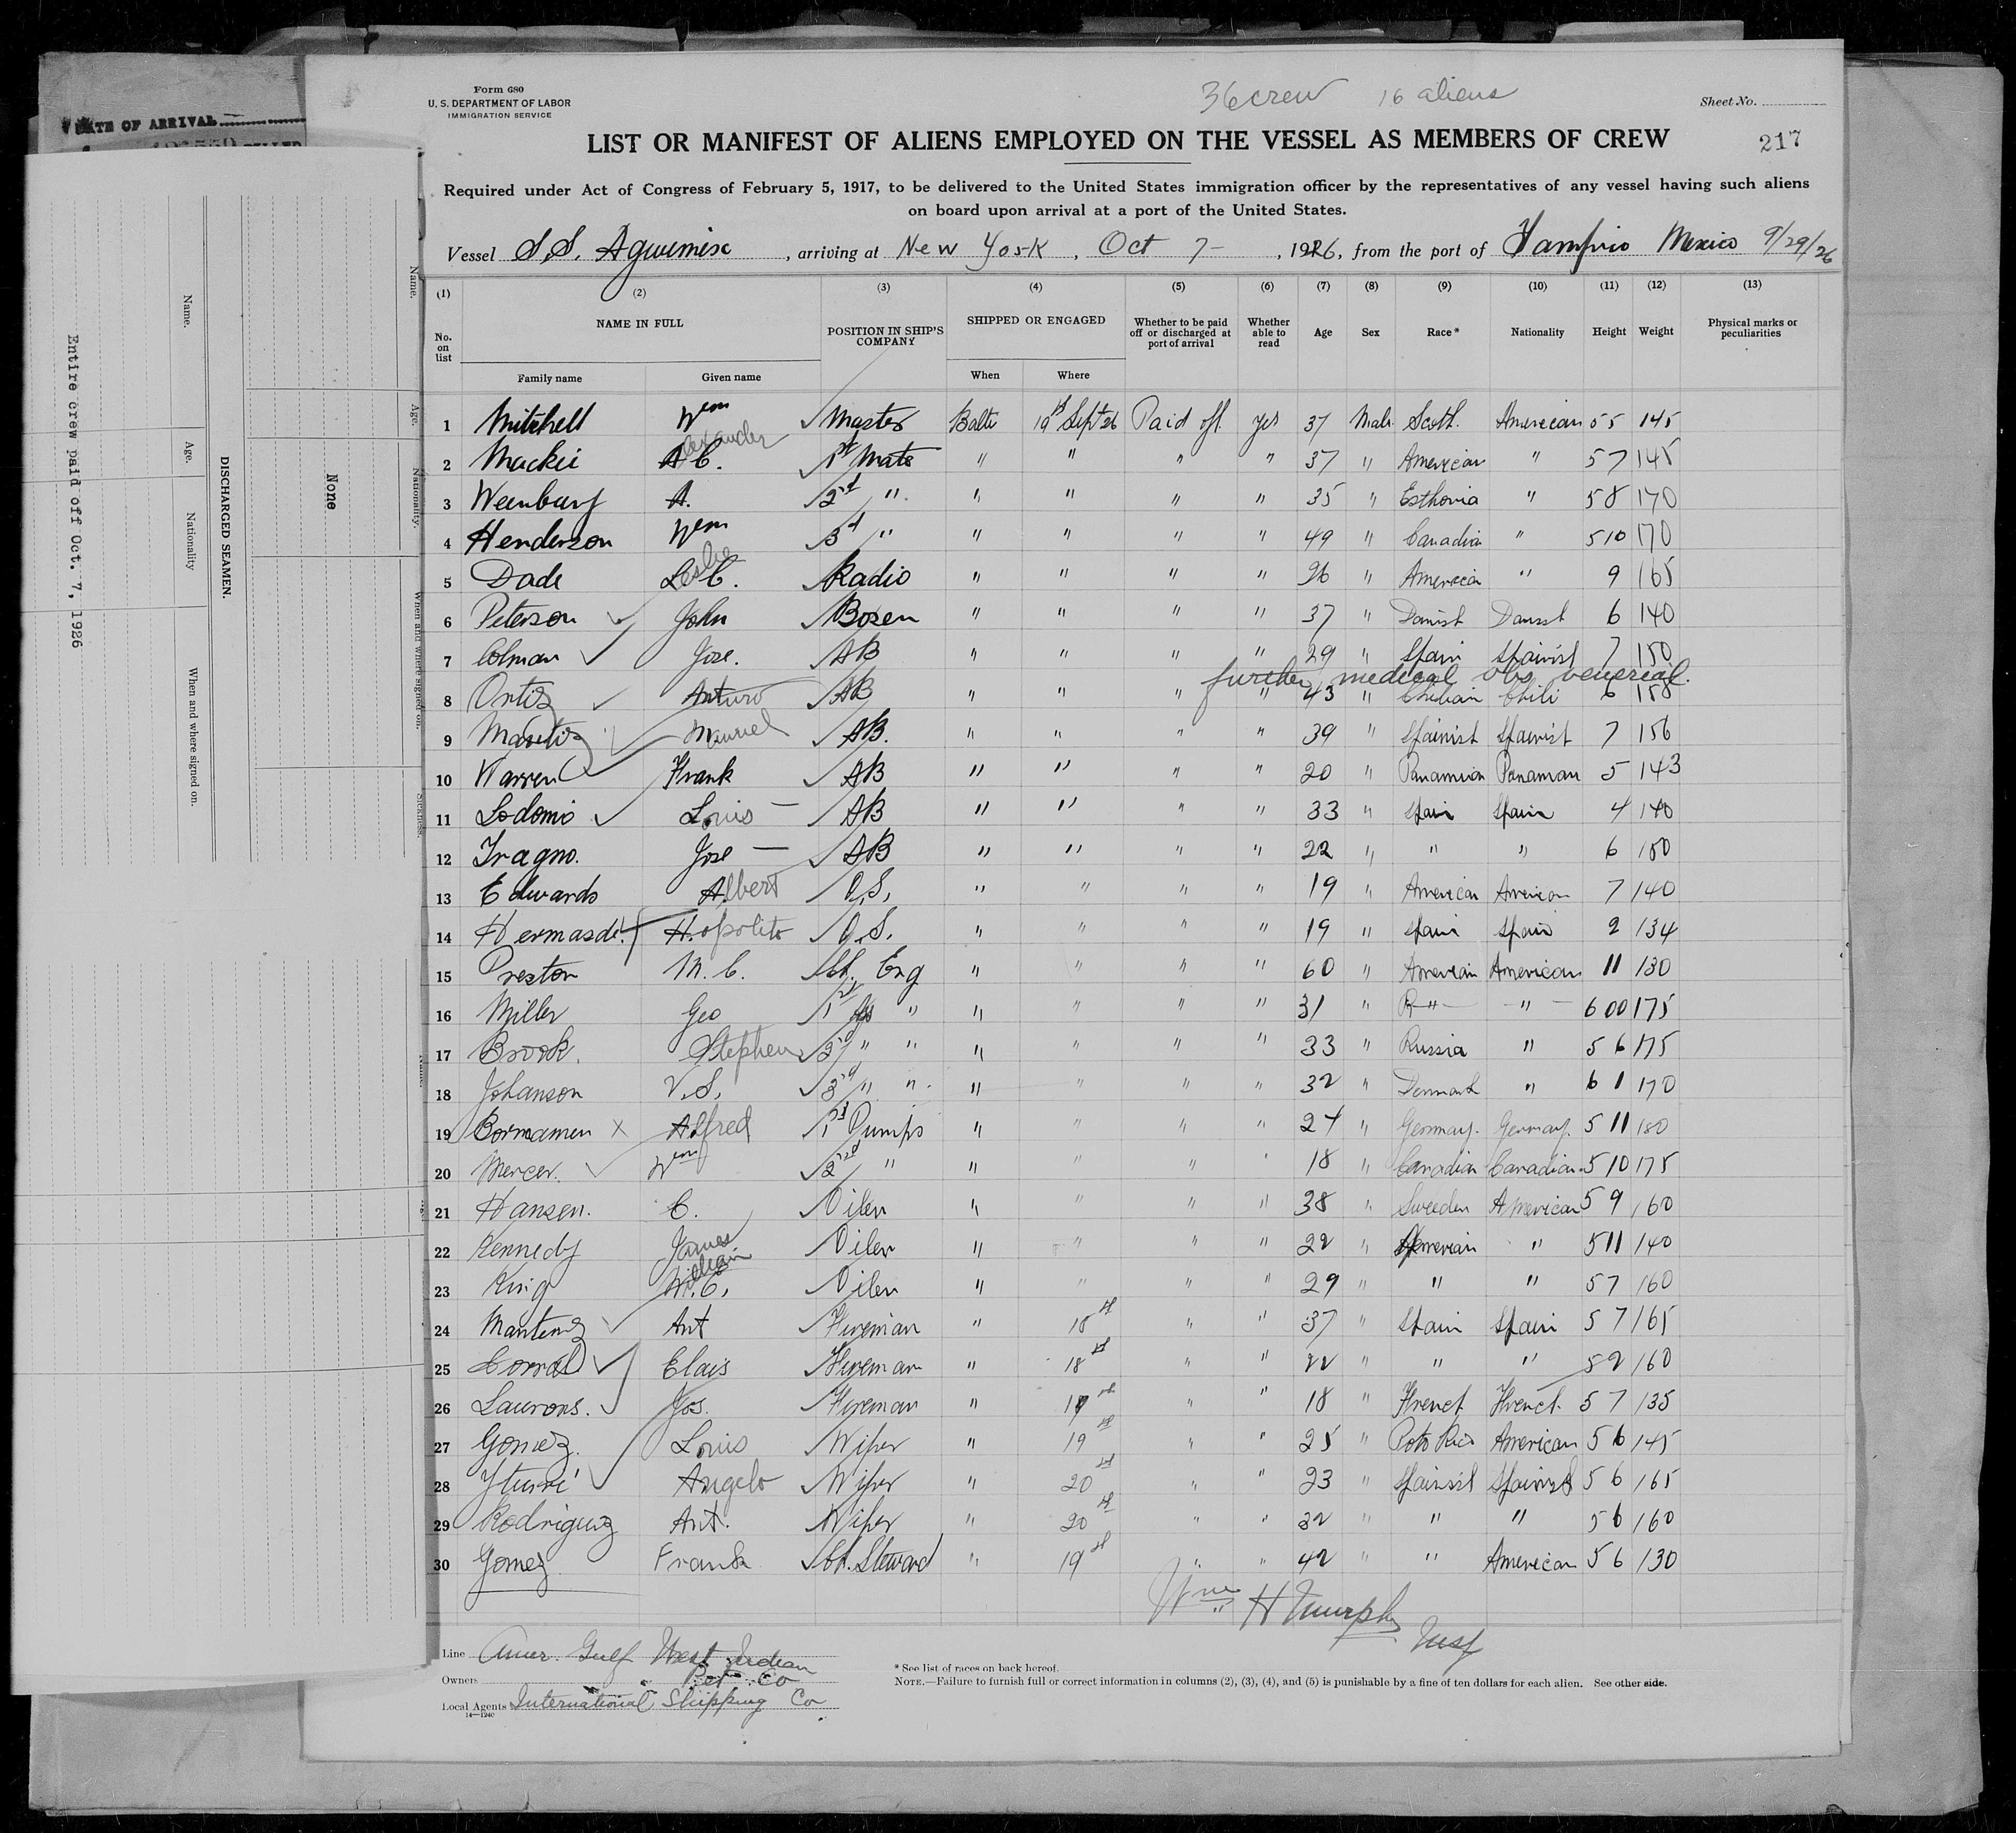 Form 680
U. S. DEPARTMENT OF LABOR
IMMIGRATION SERVICE
36 crew 16 aliens
Sheet No.
217
LIST OR MANIFEST OF ALIENS EMPLOYED ON THE VESSEL AS MEMBERS OF CREW
Required under Act of Congress of February 5, 1917, to be delivered to the United States immigration officer by the representatives of any vessel having such aliens
on board upon arrival at a port of the United States.
Vessel S.S. , arriving at New York, Oct 7- , 1926, from the port of Mexico 9/29/26
(1) (2) (3) (4) (5) (6) (7) (8) (9) (10) (11) (12) (13)
No. on list NAME IN FULL POSITION IN SHIP'S COMPANY SHIPPED OR ENGAGED Whether to be paid off or discharged at port of arrival Whether able to read Age Sex Race* Nationality Height Weight Physical marks or peculiarities
Family name Given name When Where
1 Mitchell Wm Master Balto 19 Sept 26 Paid off yes 37 Male American 55 145
2 Mackie A C. Alexander 1st Mate " " " " 37 " American " 57 145
3 A. 2d " " " " " 35 " Esthonia " 58 170
4 Henderson Wm 3d " " " " " 49 " Canadia " 510 170
5 Dade L C. Leslie Radio " " " " 26 " American " 9 165
6 Peterson John Bosen " " " " 37 " 6 140
7 Colman Jose. AB " " " " 29 " Spain 7 150
further medical obs venereal.
8 Ortiz Arturo AB " " " " 43 " Chilian Chili 6 158
9 Manuel AB. " " " " 39 " 7 156
10 Warren Frank AB " " " " 20 " 5 143
11 Lodomio Louis — AB " " " " 33 " Spain Spain 4 140
12 Jose — AB " " " " 22 " " " 6 150
13 Edwards Albert O.S. " " " " 19 " American American 7 140
14 Hopolito O.S. " " " " 19 " Spain Spain 2 134
15 Preston M. C. Ch. Eng " " " " 60 " American American 11 130
16 Miller Geo 1st " " " " " 31 " " 600 175
17 Brook. Stephen 2d " " " " " " 33 " Russia " 56 175
18 Johanson V.S. 3rd " " " " " " 32 " Denmark " 61 170
19 Alfred 1st Pumps " " " " 24 " Germany. Germany. 511 180
20 Mercer. Wm 2nd " " " " " 18 " Canadian Canadian 510 175
21 Hansen. C. Oiler " " " " 38 " Sweeden American 59 160
22 Kennedy James Oiler " " " " 22 " American " 511 140
23 King W.C. William Oiler " " " " 29 " " " 57 160
24 Ant Fireman " 18 " " 37 " Spain Spain 57 165
25 Corral Elais Fireman " 18 " " 22 " " " 52 160
26 Laurons. Jos. Fireman " " " 18 " 57 135
27 Gomez. Louis Wiper " 19 " " 25 " Poto Rico American 56 145
28 Angelo Wiper " 20 " " 23 " 56 165
29 Rodriguez Ant. Wiper " 20 " " 32 " " " 56 160
30 Gomez Frank Ch. Steward " 19 " " 42 " " American 56 130
Wm H Murphy
Line Amer. Gulf West Indian
Owners Pet. Co
Local Agents International Shipping Co
14—1240
* See list of races on back hereof.
NOTE.—Failure to furnish full or correct information in columns (2), (3), (4), and (5) is punishable by a fine of ten dollars for each alien. See other side.
DATE OF ARRIVAL
Entire crew paid off Oct. 7, 1926
DISCHARGED SEAMEN.
Name. Age. Nationality When and where signed on.
None
Name. Age. Nationality. When and where signed on.